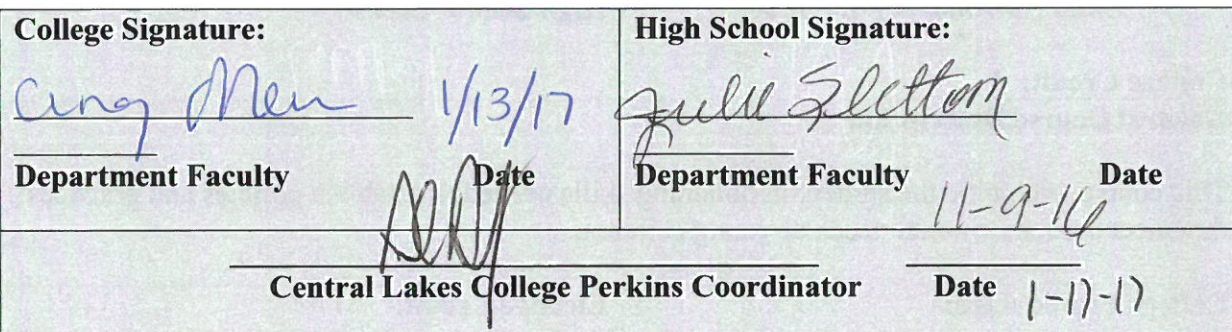 College Signature:
High School Signature:
1/13/17
Julie Slettom
Department Faculty Date
Department Faculty Date
11-9-16
Central Lakes College Perkins Coordinator Date 1-17-17